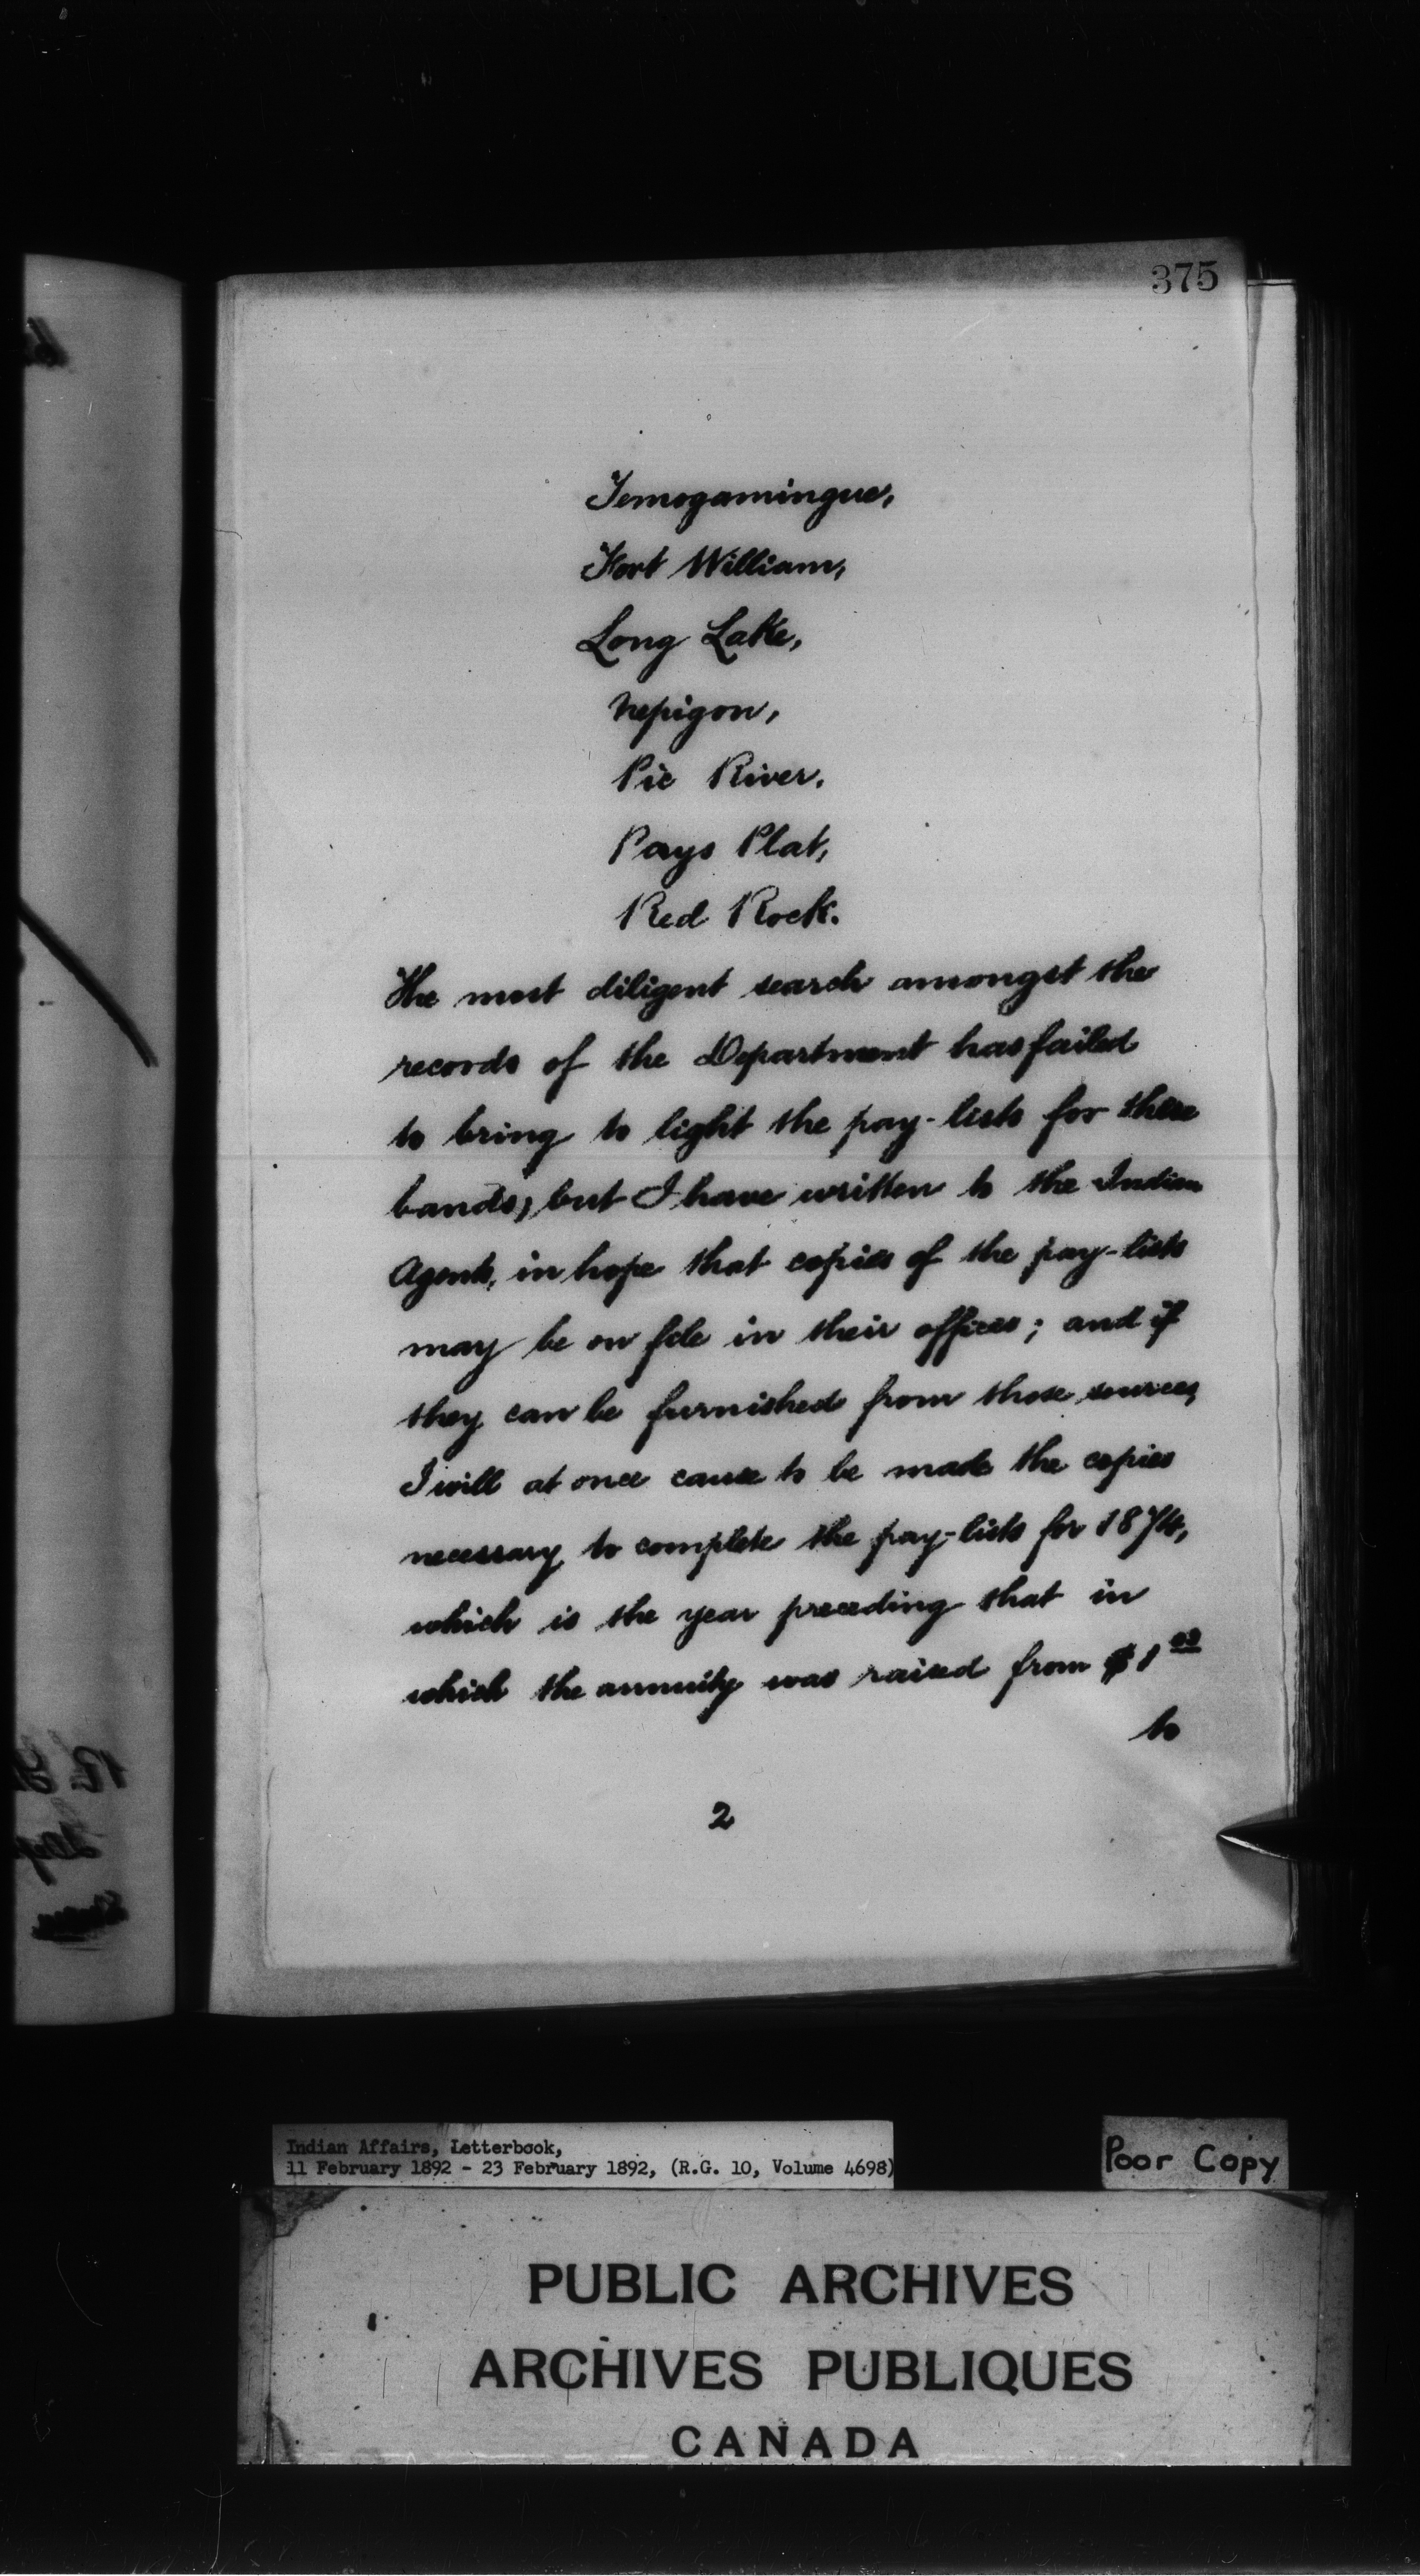 375
Temogamingue,
Fort William,
Long Lake,
Nepigon,
Pic River,
Pays Plat,
Red Rock.
The most diligent search amongst the
records of the Department has failed
to bring to light the pay-lists for these
bands, but I have written to the Indian
Agents, in hope that copies of the pay-lists
may be on file in their offices; and if
they can be furnished from those sources,
I will at once cause to be made the copies
necessary to complete the pay-lists for 1874,
which is the year preceding that in
which the annuity was raised from $1.00
to
2
Indian Affairs, Letterbook,
11 February 1892 - 23 February 1892, (R.G. 10, Volume 4698)
Poor Copy
PUBLIC ARCHIVES
ARCHIVES PUBLIQUES
CANADA